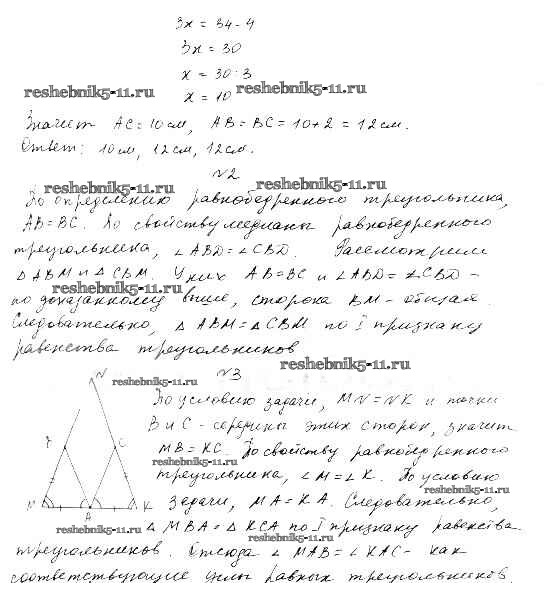 3x = 34 - 4
3x = 30
x = 30 : 3
reshebnik5-11.ru
reshebnik5-11.ru
x = 10
Значит AC = 10 см, AB = BC = 10 + 2 = 12 см.
Ответ: 10 см, 12 см, 12 см.
№2
reshebnik5-11.ru
reshebnik5-11.ru
По определению равнобедренного треугольника,
AB = BC. По свойству медианы равнобедренного
треугольника, ∠ABD = ∠CBD. Рассмотрим
△ABM и △CBM. У них AB = BC и ∠ABD = ∠CBD -
reshebnik5-11.ru
по доказанному выше, сторона BM - общая.
Следовательно, △ABM = △CBM по I признаку
равенства треугольников
reshebnik5-11.ru
№3
N
reshebnik5-11.ru
По условию задачи, MN = NK и точки
B и C - середины этих сторон, значит
C
MB = KC. По свойству равнобедренного
reshebnik5-11.ru
треугольника, ∠M = ∠K. По условию
reshebnik5-11.ru
M A K
задачи, MA = KA. Следовательно,
reshebnik5-11.ru
reshebnik5-11.ru
△MBA = △KCA по I признаку равенства
треугольников. Отсюда ∠MAB = ∠KAC - как
соответствующие углы равных треугольников.